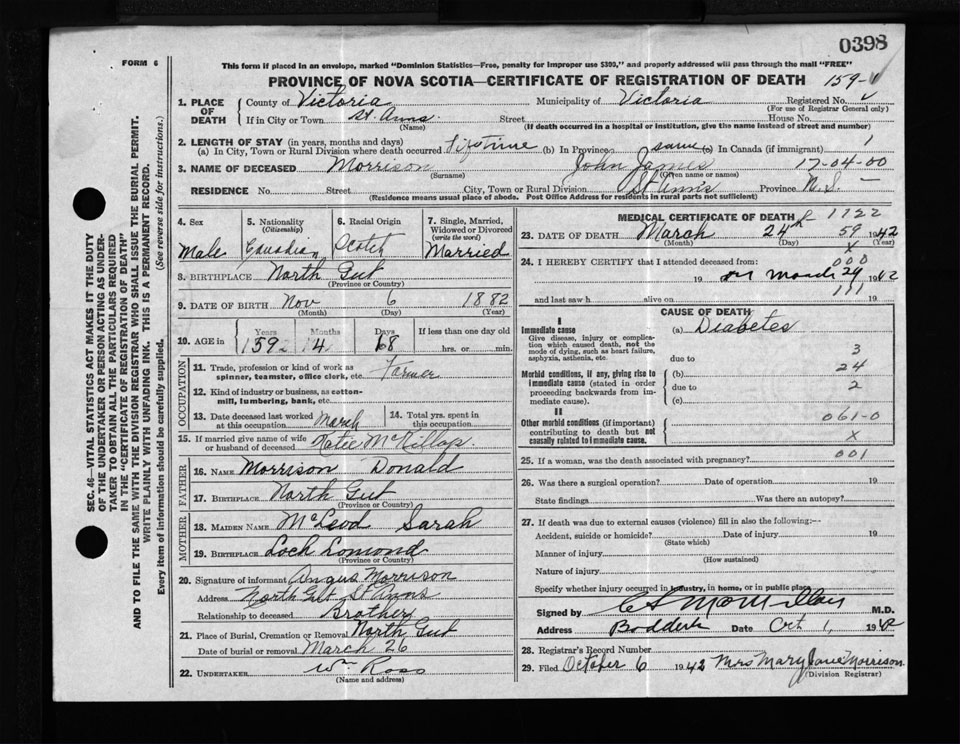 0398
FORM 6
This form if placed in an envelope, marked "Dominion Statistics—Free, penalty for improper use $300," and properly addressed will pass through the mail "FREE"
PROVINCE OF NOVA SCOTIA—CERTIFICATE OF REGISTRATION OF DEATH 159-
1. PLACE OF DEATH County of Victoria Municipality of Victoria Registered No. (For use of Registrar General only)
If in City or Town St. Anns (Name) Street House No.
(If death occurred in a hospital or institution, give the name instead of street and number)
2. LENGTH OF STAY (in years, months and days)
(a) In City, Town or Rural Division where death occurred Lifetime (b) In Province same (c) In Canada (if immigrant) 1
3. NAME OF DECEASED Morrison (Surname) John James (Given name or names) 17-04-00
RESIDENCE No. Street City, Town or Rural Division St Ann's Province N.S.
(Residence means usual place of abode. Post Office Address for residents in rural parts not sufficient)
4. Sex Male
5. Nationality (Citizenship) Canadian
6. Racial Origin Scotch
7. Single, Married, Widowed or Divorced (write the word) Married
8. BIRTHPLACE North Gut (Province or Country)
9. DATE OF BIRTH Nov (Month) 6 (Day) 1882 (Year)
10. AGE in Years 59 Months 4 Days 18 If less than one day old hrs. or min.
OCCUPATION
11. Trade, profession or kind of work as spinner, teamster, office clerk, etc. Farmer
12. Kind of industry or business, as cotton-mill, lumbering, bank, etc.
13. Date deceased last worked at this occupation March
14. Total yrs. spent in this occupation
15. If married give name of wife or husband of deceased Katie McKillop
FATHER
16. NAME Morrison Donald
17. BIRTHPLACE North Gut (Province or Country)
MOTHER
18. MAIDEN NAME McLeod Sarah
19. BIRTHPLACE Loch Lomond (Province or Country)
20. Signature of informant Angus Morrison
Address North Gut St Anns
Relationship to deceased Brother
21. Place of Burial, Cremation or Removal North Gut
Date of burial or removal March 26
22. UNDERTAKER Wm Ross
MEDICAL CERTIFICATE OF DEATH 1122
23. DATE OF DEATH March (Month) 24th (Day) 59 1942 (Year)
x
24. I HEREBY CERTIFY that I attended deceased from: 000
19 on March 24 1942
111
and last saw h alive on 19
CAUSE OF DEATH
I
Immediate cause (a) Diabetes
Give disease, injury or complication which caused death, not the mode of dying, such as heart failure, asphyxia, asthenia, etc.
due to 3
24
Morbid conditions, if any, giving rise to immediate cause (stated in order proceeding backwards from immediate cause). (b)
due to 2
(c)
II
Other morbid conditions (if important) contributing to death but not causally related to immediate cause. 061-0
x
25. If a woman, was the death associated with pregnancy? 001
26. Was there a surgical operation? Date of operation 19
State findings Was there an autopsy?
27. If death was due to external causes (violence) fill in also the following:—
Accident, suicide or homicide? (State which) Date of injury 19
Manner of injury (How sustained)
Nature of injury
Specify whether injury occurred in industry, in home, or in public place
Signed by C L MacMillan M.D.
Address Baddeck Date Oct 1, 1942
28. Registrar's Record Number
29. Filed October 6 1942 Mrs Mary Jane Morrison (Division Registrar)
SEC. 46—VITAL STATISTICS ACT MAKES IT THE DUTY
OF THE UNDERTAKER OR PERSON ACTING AS UNDER-
TAKER TO OBTAIN ALL THE PARTICULARS REQUIRED
IN THE "CERTIFICATE OF REGISTRATION OF DEATH"
AND TO FILE THE SAME WITH THE DIVISION REGISTRAR WHO SHALL ISSUE THE BURIAL PERMIT.
WRITE PLAINLY WITH UNFADING INK. THIS IS A PERMANENT RECORD.
Every item of information should be carefully supplied. (See reverse side for instructions.)